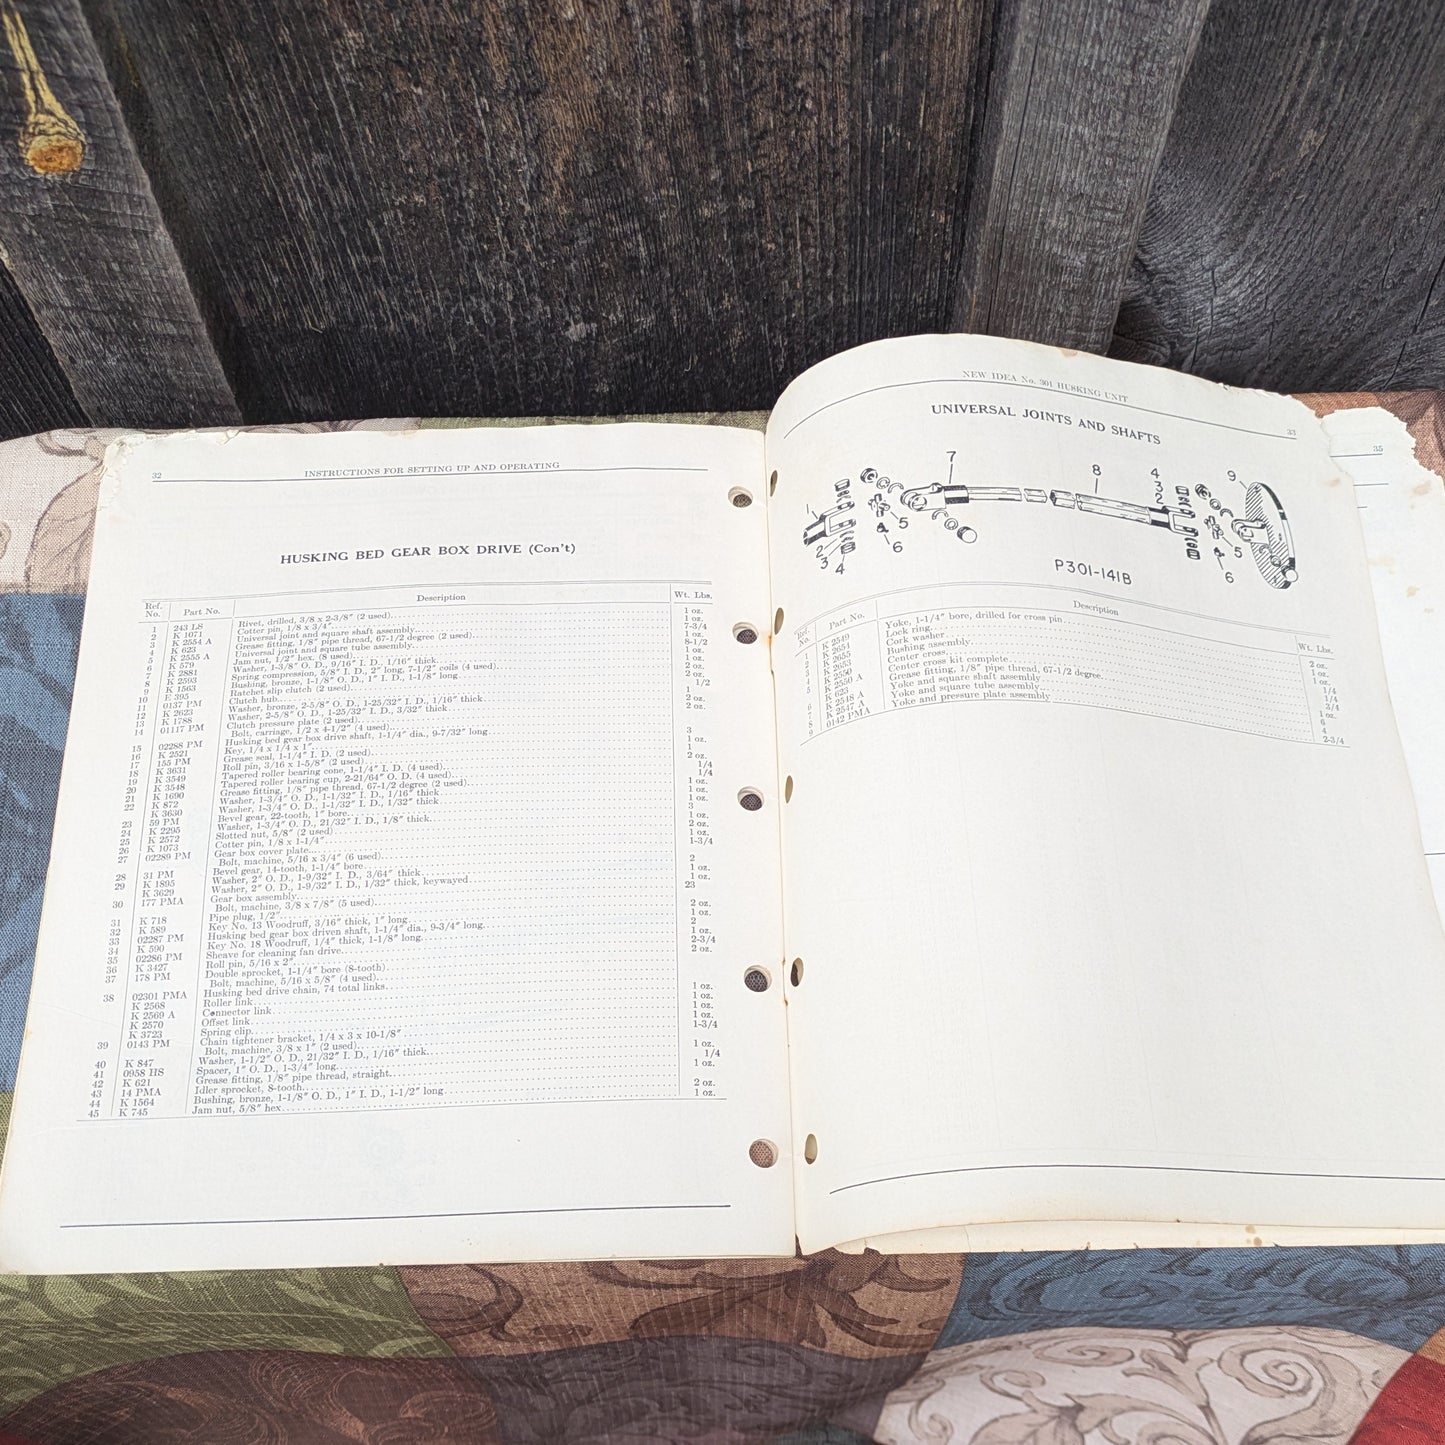 32
INSTRUCTIONS FOR SETTING UP AND OPERATING
HUSKING BED GEAR BOX DRIVE (Con't)
Ref. No. Part No. Description Wt. Lbs.
1 243 LS Rivet, drilled, 3/8 x 2-3/8" (2 used) 1 oz.
2 K 1071 Cotter pin, 1/8 x 3/4" 1 oz.
3 K 2554 A Universal joint and square shaft assembly 7-3/4
4 K 623 Grease fitting, 1/8" pipe thread, 67-1/2 degree (2 used) 1 oz.
5 K 2555 A Universal joint and square tube assembly 8-1/2
6 K 579 Jam nut, 1/2" hex. (8 used) 1 oz.
7 K 2881 Washer, 1-3/8" O. D., 9/16" I. D., 1/16" thick 1 oz.
8 K 2593 Spring compression, 5/8" I. D. 2" long, 7-1/2" coils (4 used) 2 oz.
9 K 1563 Bushing, bronze, 1-1/8" O. D., 1" I. D., 1-1/8" long 2 oz.
10 E 395 Ratchet slip clutch (2 used) 1/2
11 0137 PM Clutch hub 1
12 K 2623 Washer, bronze, 2-5/8" O. D., 1-25/32" I. D., 1/16" thick 2 oz.
13 K 1788 Washer, 2-5/8" O. D., 1-25/32" I. D., 3/32" thick 2 oz.
14 01117 PM Clutch pressure plate (2 used)
Bolt, carriage, 1/2 x 4-1/2" (4 used)
15 02288 PM Husking bed gear box drive shaft, 1-1/4" dia., 9-7/32" long 3
16 K 2521 Key, 1/4 x 1/4 x 1" 1 oz.
17 155 PM Grease seal, 1-1/4" I. D. (2 used) 1
18 K 3631 Roll pin, 3/16 x 1-5/8" (2 used) 2 oz.
19 K 3549 Tapered roller bearing cone, 1-1/4" I. D. (4 used) 1/4
20 K 3548 Tapered roller bearing cup, 2-21/64" O. D. (4 used) 1/4
21 K 1690 Grease fitting, 1/8" pipe thread, 67-1/2 degree (2 used) 1 oz.
22 K 872 Washer, 1-3/4" O. D., 1-1/32" I. D., 1/16" thick 1 oz.
K 3630 Washer, 1-3/4" O. D., 1-1/32" I. D., 1/32" thick 1 oz.
23 59 PM Bevel gear, 22-tooth, 1" bore 3
24 K 2295 Washer, 1-3/4" O. D., 21/32" I. D., 1/8" thick 1 oz.
25 K 2572 Slotted nut, 5/8" (2 used) 2 oz.
26 K 1073 Cotter pin, 1/8 x 1-1/4" 1 oz.
27 02289 PM Gear box cover plate 1-3/4
Bolt, machine, 5/16 x 3/4" (6 used)
28 31 PM Bevel gear, 14-tooth, 1-1/4" bore 2
29 K 1895 Washer, 2" O. D., 1-9/32" I. D., 3/64" thick 1 oz.
K 3629 Washer, 2" O. D., 1-9/32" I. D., 1/32" thick, keywayed 1 oz.
30 177 PMA Gear box assembly 23
Bolt, machine, 3/8 x 7/8" (5 used)
31 K 718 Pipe plug, 1/2" 2 oz.
32 K 589 Key No. 13 Woodruff, 3/16" thick, 1" long 1 oz.
33 02287 PM Husking bed gear box driven shaft, 1-1/4" dia., 9-3/4" long 2
34 K 590 Key No. 18 Woodruff, 1/4" thick, 1-1/8" long 1 oz.
35 02286 PM Sheave for cleaning fan drive 2-3/4
36 K 3427 Roll pin, 5/16 x 2" 2 oz.
37 178 PM Double sprocket, 1-1/4" bore (8-tooth)
Bolt, machine, 5/16 x 5/8" (4 used)
38 02301 PMA Husking bed drive chain, 74 total links
K 2568 Roller link 1 oz.
K 2569 A Connector link 1 oz.
K 2570 Offset link 1 oz.
K 3723 Spring clip
39 0143 PM Chain tightener bracket, 1/4 x 3 x 10-1/8" 1-3/4
Bolt, machine, 3/8 x 1" (2 used)
40 K 847 Washer, 1-1/2" O. D., 21/32" I. D., 1/16" thick 1 oz.
41 0958 HS Spacer, 1" O. D., 1-3/4" long 1/4
42 K 621 Grease fitting, 1/8" pipe thread, straight 1 oz.
43 14 PMA Idler sprocket, 8-tooth
44 K 1564 Bushing, bronze, 1-1/8" O. D., 1" I. D., 1-1/2" long 2 oz.
45 K 745 Jam nut, 5/8" hex 1 oz.
NEW IDEA No. 301 HUSKING UNIT
33
UNIVERSAL JOINTS AND SHAFTS
1 2 3 4 5 6 7 8 4 3 2 5 6 9
P301-141B
Ref. No. Part No. Description Wt. Lbs.
1 K 2549 Yoke, 1-1/4" bore, drilled for cross pin 2 oz.
2 K 2654 Lock ring 1 oz.
3 K 2655 Cork washer 1 oz.
4 K 2653 Bushing assembly 1/4
5 K 2550 Center cross 1/4
K 2550 A Center cross kit complete 3/4
6 K 623 Grease fitting, 1/8" pipe thread, 67-1/2 degree 1 oz.
7 K 2548 A Yoke and square shaft assembly 6
8 K 2547 A Yoke and square tube assembly 4
9 0142 PMA Yoke and pressure plate assembly 2-3/4
35